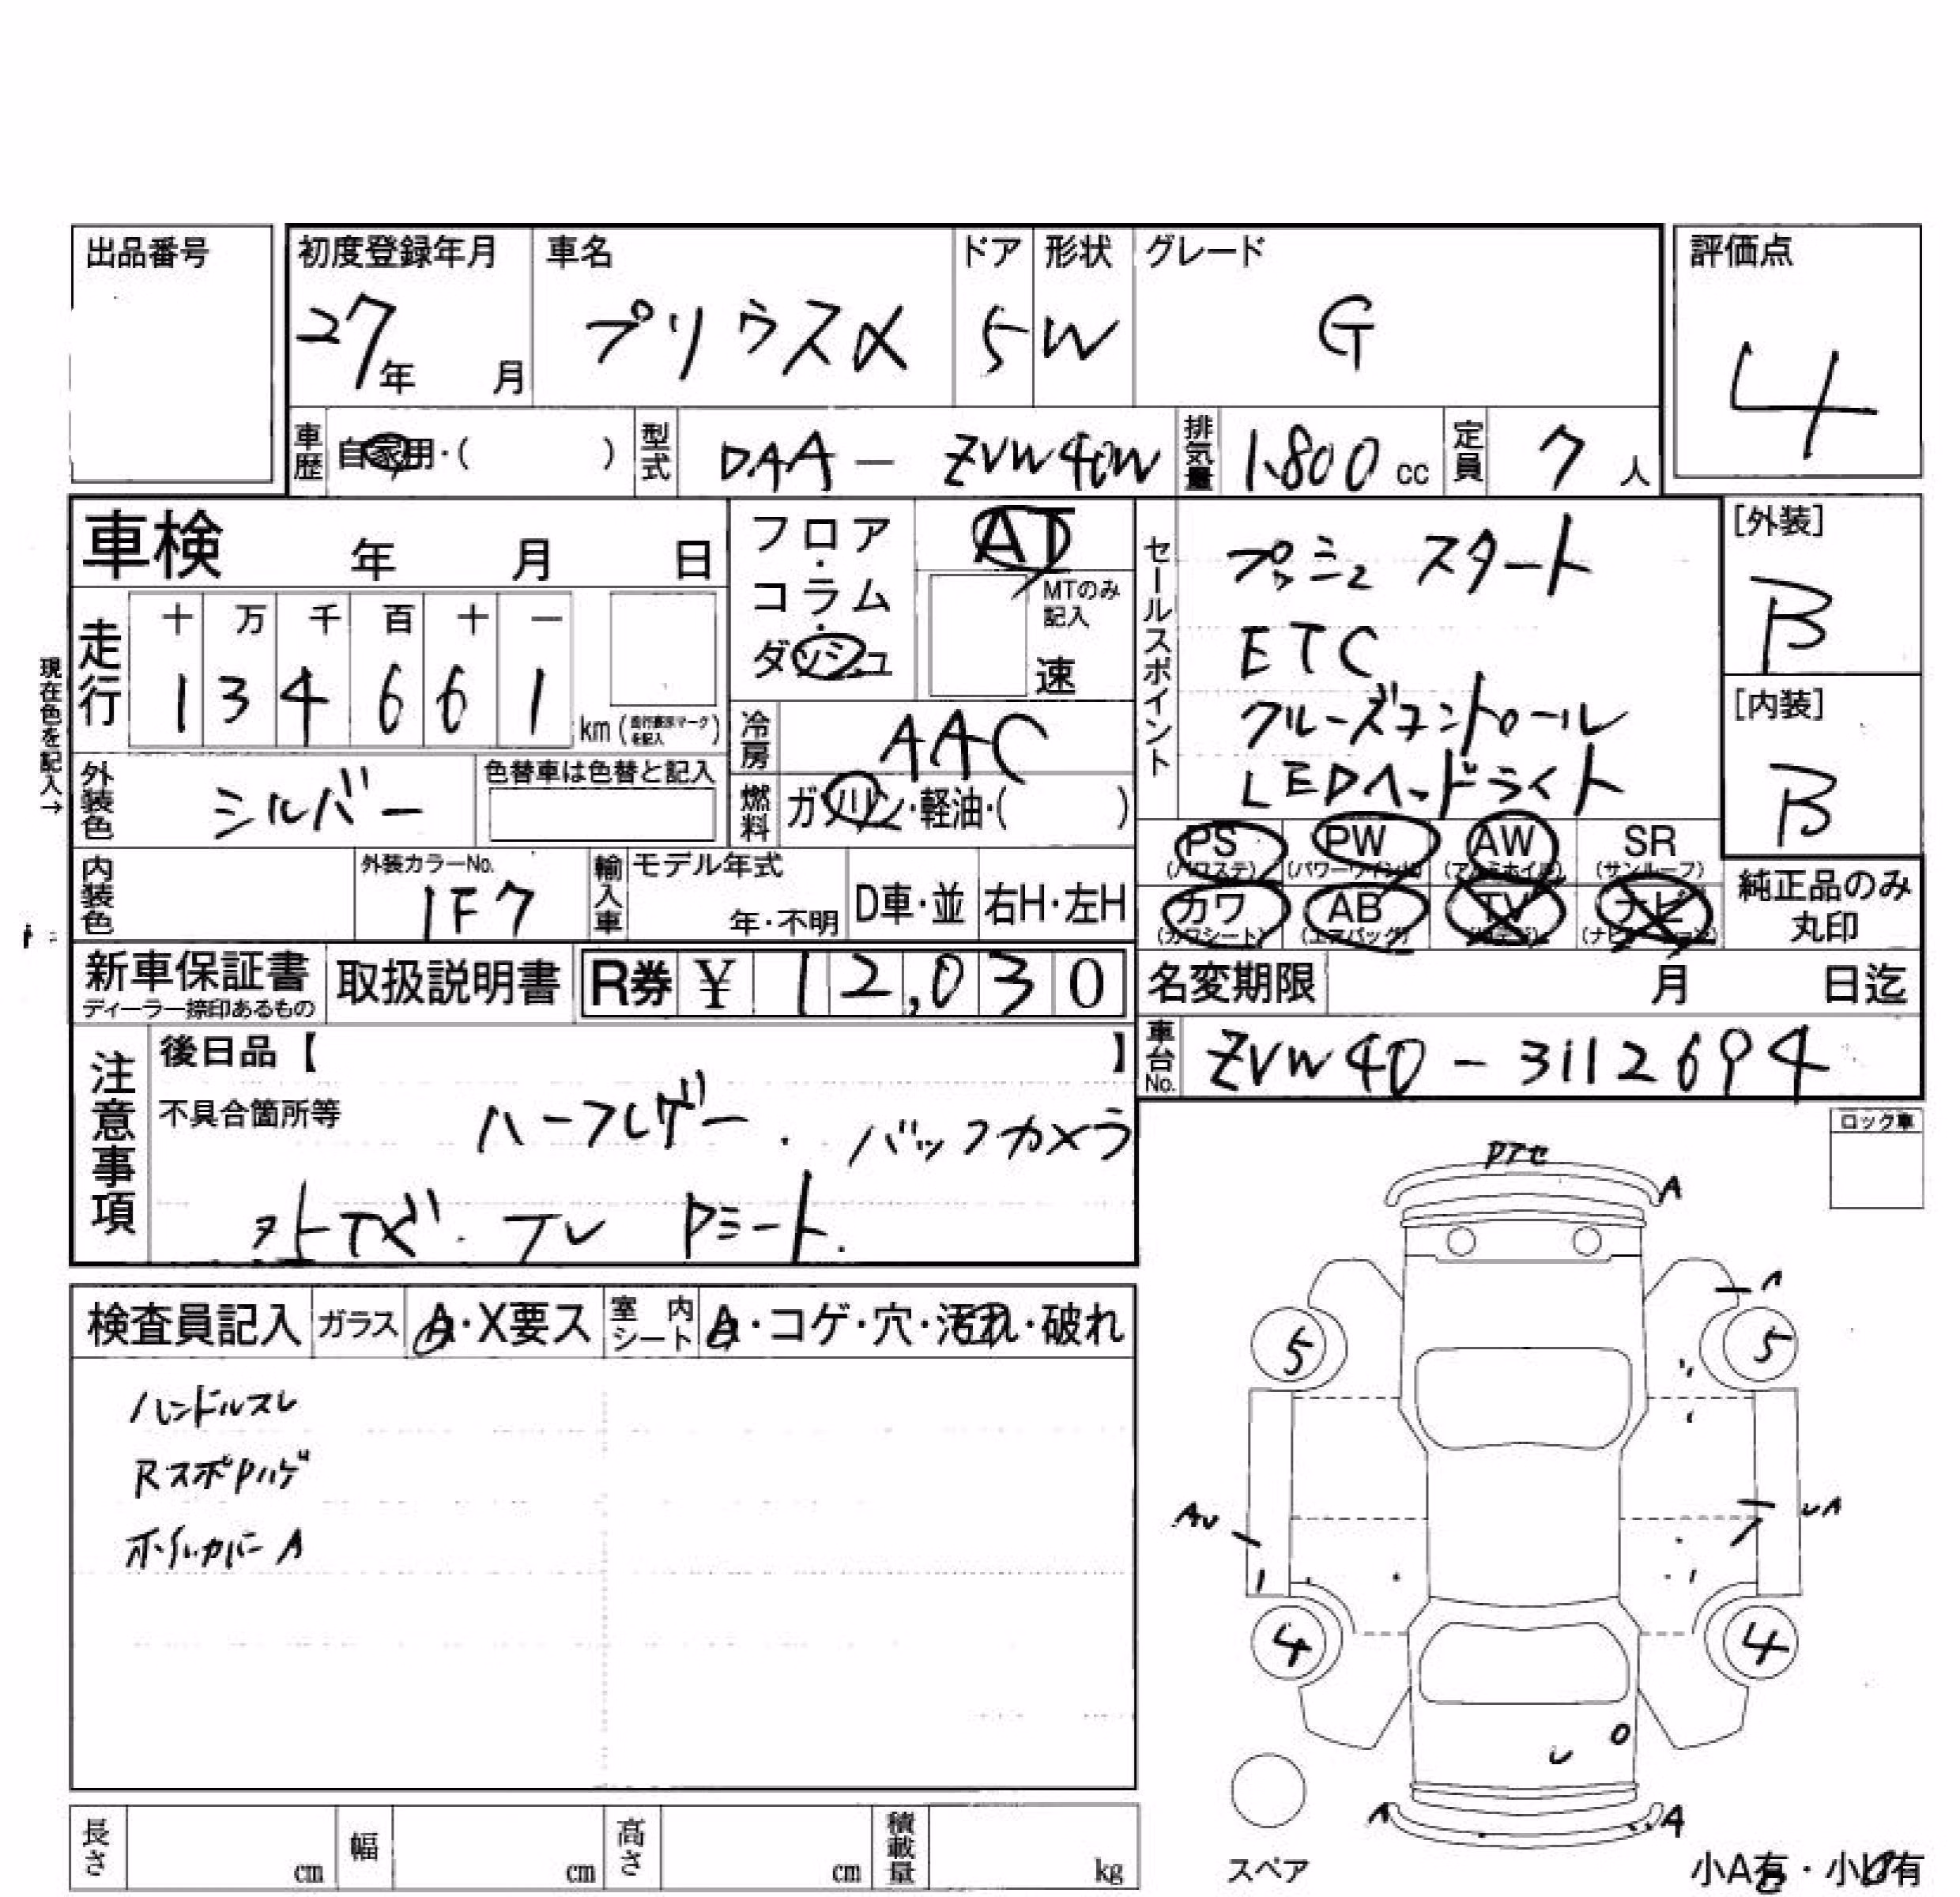 出品番号
初度登録年月 車名 ドア 形状 グレード 評価点
27年 月 プリウスα 5 W G 4
車歴 自家用・( ) 型式 DAA - ZVW40W 排気量 1,800 cc 定員 7 人
車検 年 月 日
フロア・コラム・ダッシュ
AT
MTのみ記入
速
現在色を記入→
走行 十 万 千 百 十 一
1 3 4 6 6 1 km (走行表示マークを記入)
冷房 AAC
外装色 シルバー 色替車は色替と記入
燃料 ガソリン・軽油・( )
内装色 外装カラーNo. 1F7
輸入車 モデル年式 年・不明 D車・並 右H・左H
新車保証書 ディーラー捺印あるもの 取扱説明書 R券 ¥ 12,030
セールスポイント
プッシュスタート
ETC
クルーズコントロール
LEDヘッドライト
[外装]
B
[内装]
B
PS (パワステ) PW (パワーウインド) AW (アルミホイル) SR (サンルーフ)
カワ (カワシート) AB (エアバッグ) TV ナビ (ナビゲーション)
純正品のみ丸印
名変期限 月 日迄
車台No. ZVW40-3112694
注意事項
後日品【 】
不具合箇所等 ハーフレザー. バックカメラ
TV Pシート.
ロック車
検査員記入 ガラス A・X要ス 室内シート A・コゲ・穴・汚れ・破れ
ハンドルスレ
RスポPハゲ
ホイルカバーA
A
A
5 5
AU UA
4 4
U
A A
スペア
小A有・小U有
長さ cm 幅 cm 高さ cm 積載量 kg